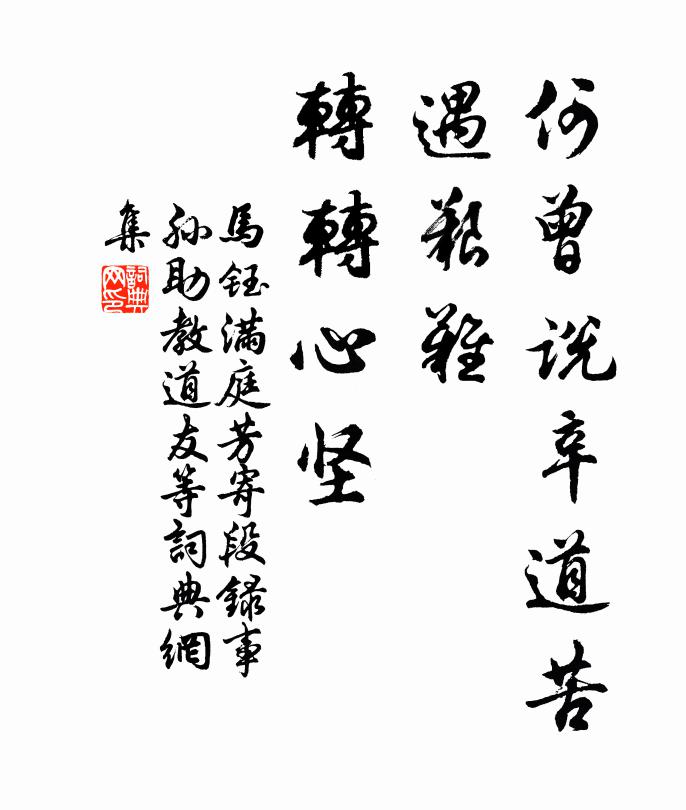 何曾說辛道苦
遇艱難
轉轉心坚
馬鈺滿庭芳寄段錄事
孙助教道友等詞典網
集
詞典
网印